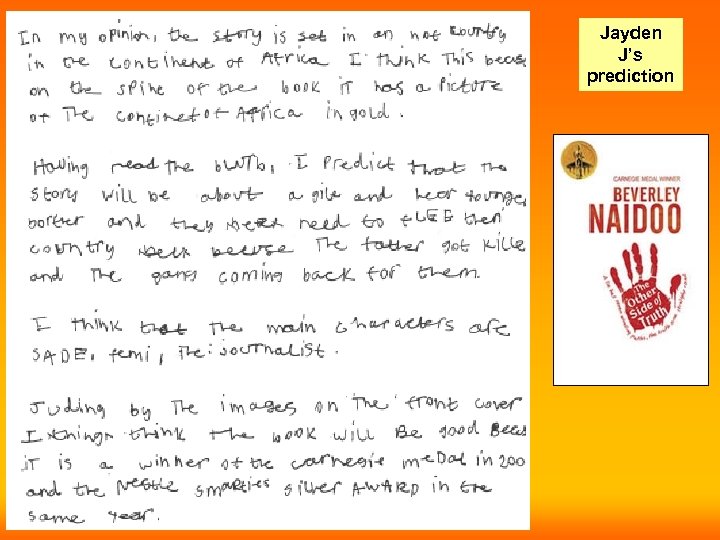 In my opinion, the story is set in an hot country
in the continent of Africa I think this becaus
on the spine of the book it has a picture
of the continet of Africa in gold.
Having read the blurb, I predict that the
story will be about a gile and heer younger
borther and they need to FLEE their
country because the father got kille
and the gang coming back for them.
I think that the main characters are
SADE, femi, The journalist.
Juding by the images on the front cover
I think the book will Be good Beca
it is a winner of the carnegie medal in 200
and the Nestle smarties silver AWARD in the
same year.
Jayden
J's
prediction
CARNEGIE MEDAL WINNER
BEVERLEY
NAIDOO
The
Other
Side of
Truth